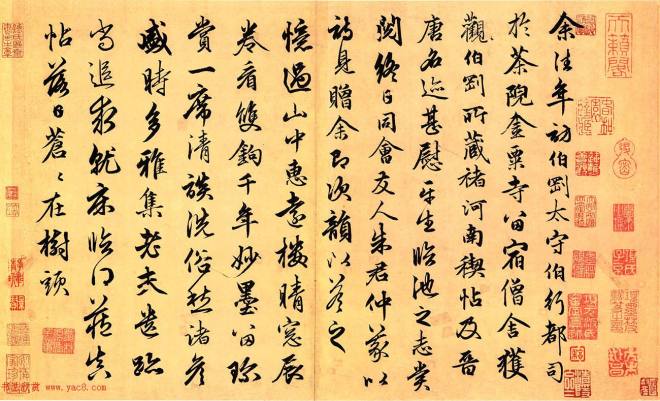 余往年訪伯剛太守伯行都司
於茶院金粟寺留宿僧舍獲
觀伯剛所藏褚河南禊帖及晉
唐名迹甚慰平生臨池之志賞
閱終日同會友人朱君仲以
詩見贈余即次韻以答之
憶過山中惠遠樓晴窓展
卷看雙鉤千年妙墨留珍
賞一席清談洗俗愁諸彥
盛時多雅集老夫遺跡
尚追求就床臨得藏真
帖落日蒼〻在樹頭
天籟閣
书法欣赏 www.yac8.com